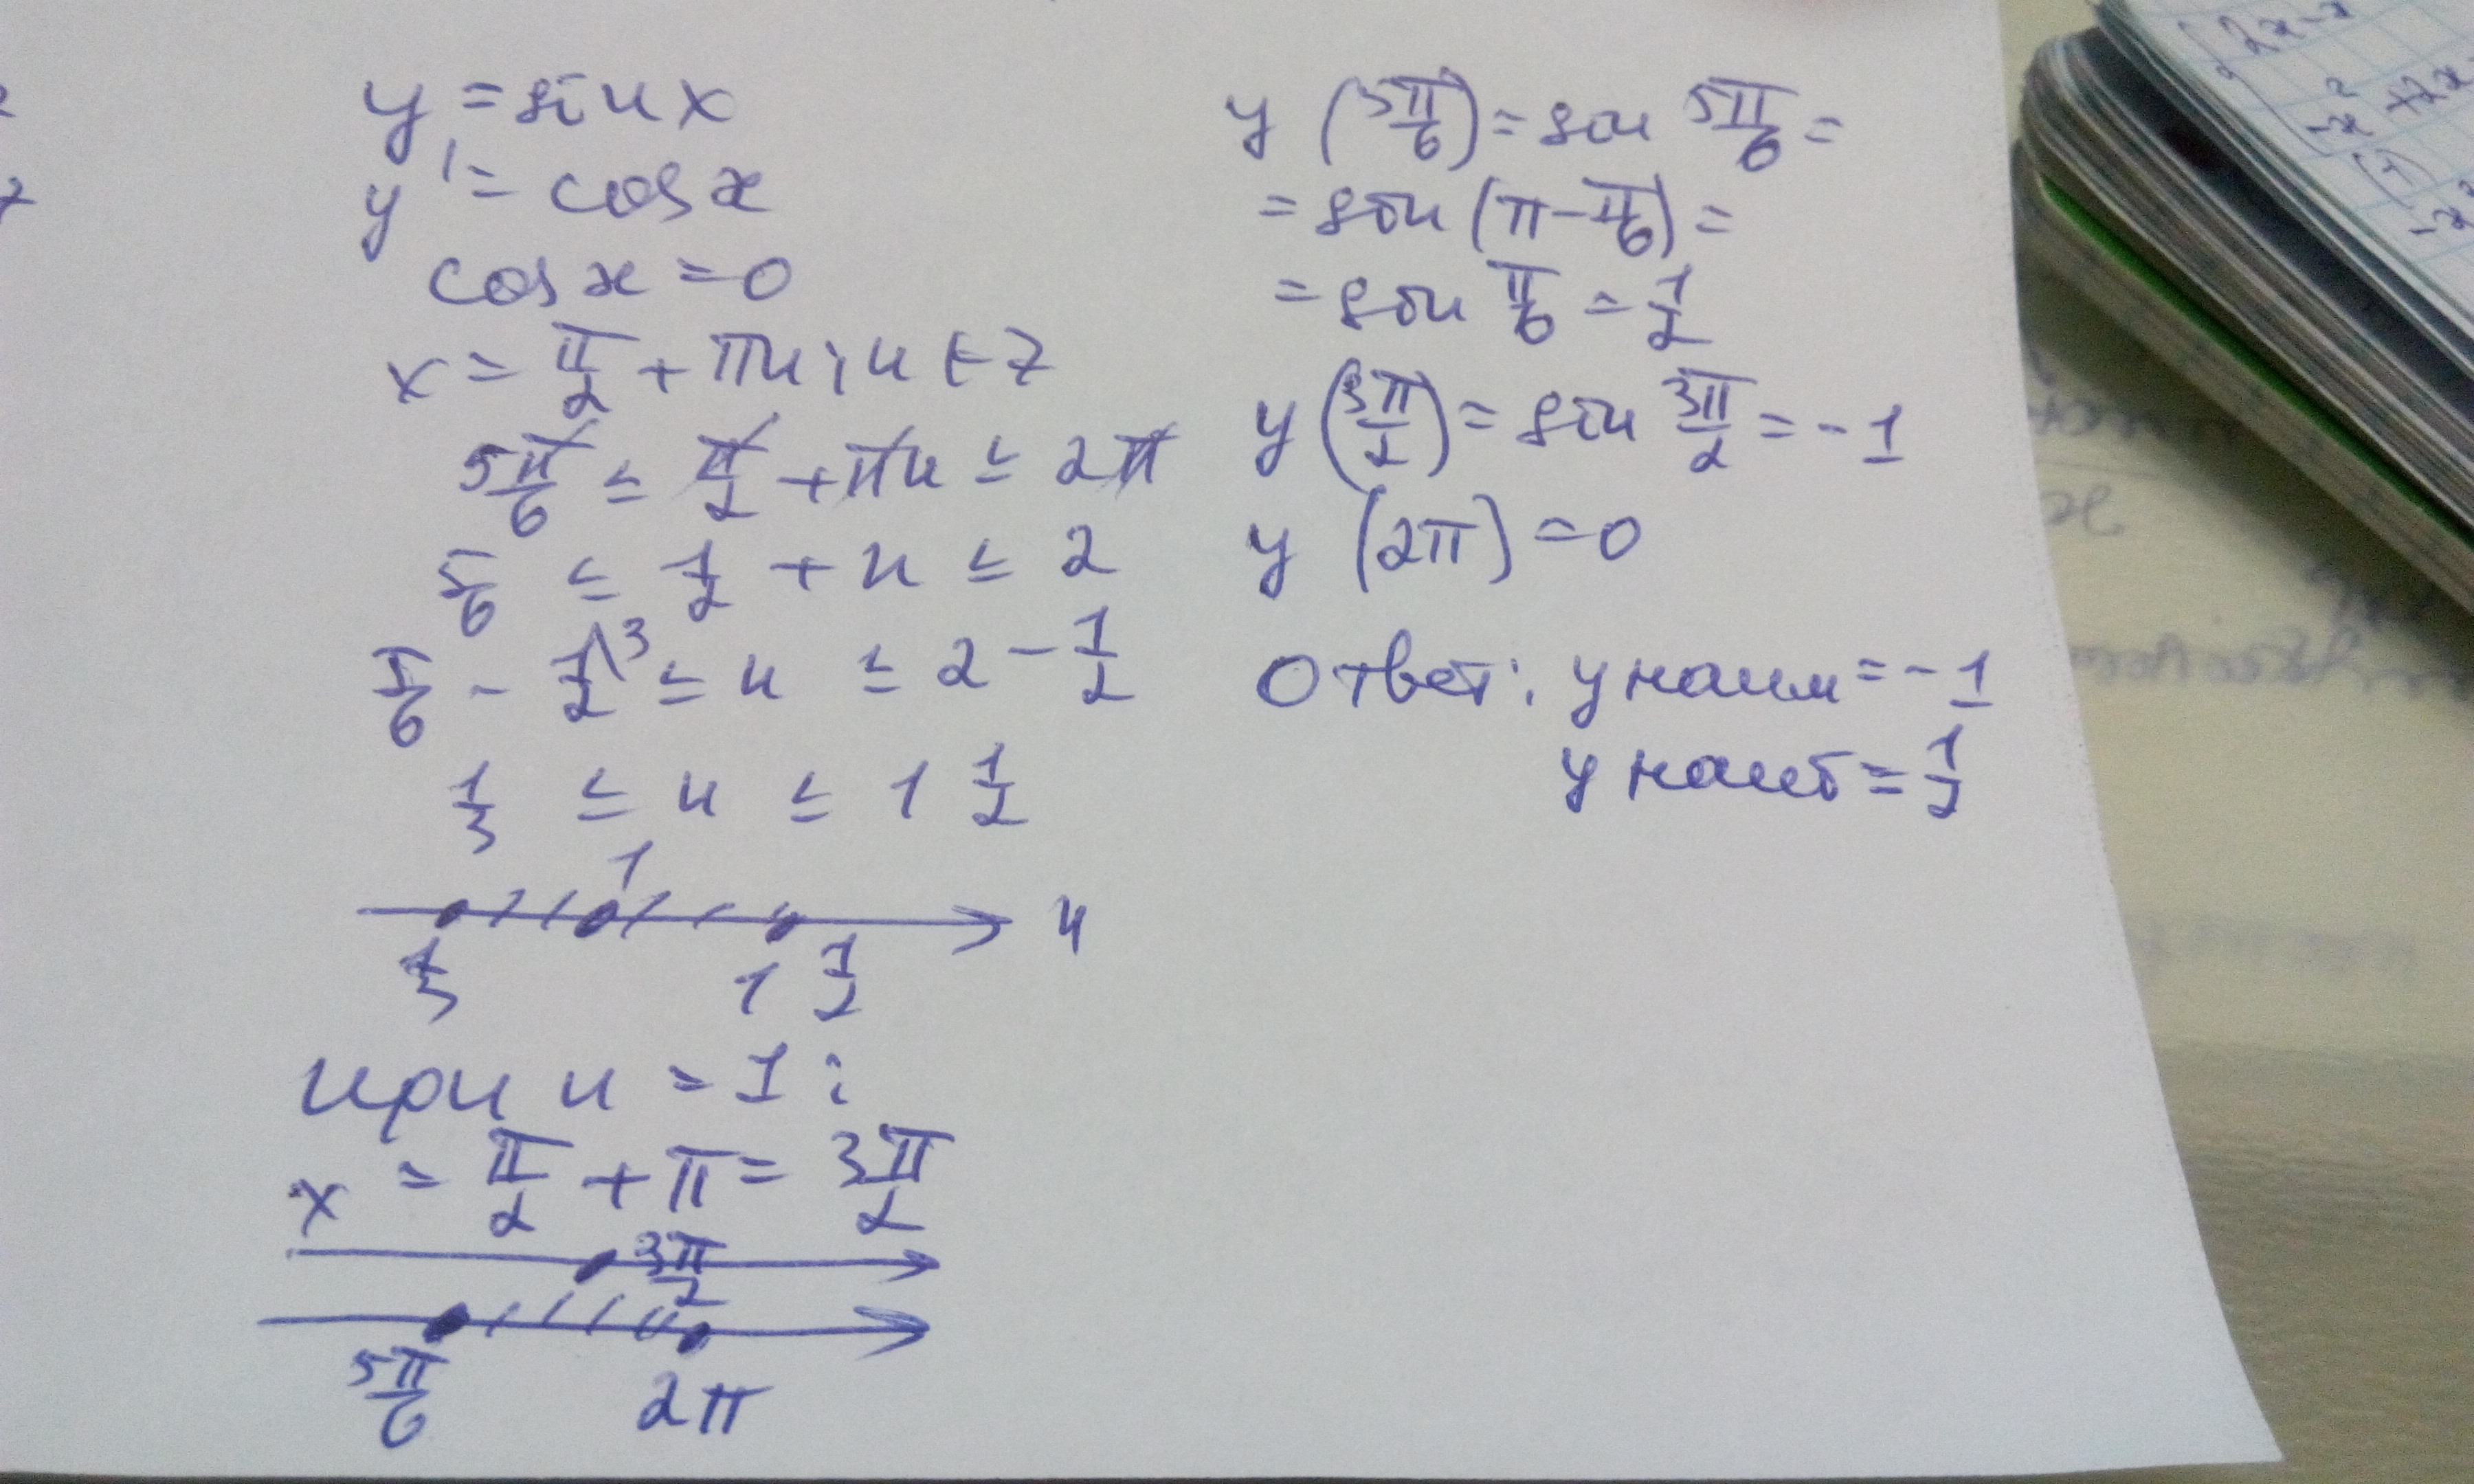 y = sin x
y' = cos x
cos x = 0
x = π/2 + πn; n ∈ Z
5π/6 ≤ π/2 + πn ≤ 2π
5/6 ≤ 1/2 + n ≤ 2
5/6 - 1/2\3 ≤ n ≤ 2 - 1/2
1/3 ≤ n ≤ 1 1/2
1
n
1/3 1 1/2
при n = 1:
x = π/2 + π = 3π/2
3π/2
5π/6 2π
y (5π/6) = sin 5π/6 =
= sin (π - π/6) =
= sin π/6 = 1/2
y (3π/2) = sin 3π/2 = -1
y (2π) = 0
Ответ: y наим = -1
y наиб = 1/2
2x-x